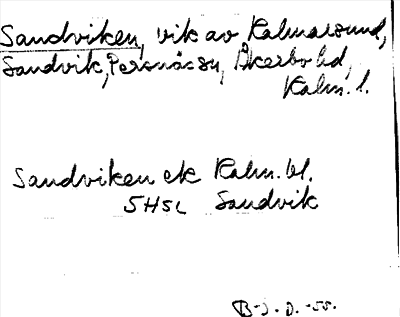 Sandviken, vik av Kalmarsund,
Sandvik, Persnäs sn, Åkerbo hd,
Kalm. l.
Sandviken ek Kalm. bl.
SHSL Sandvik
B-J. D. -55.